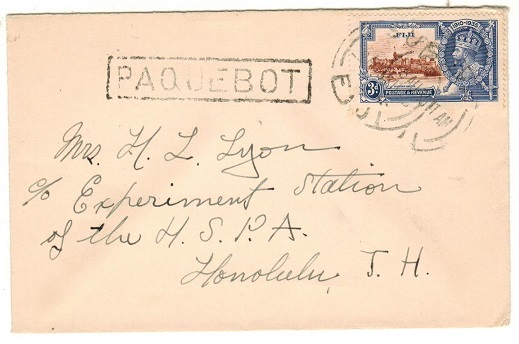 FIJI
1910-1935
PAQUEBOT
3d
POSTAGE & REVENUE
Mrs. H. L. Lyon
c/o Experiment Station
of the H. S. P. A.
Honolulu, T. H.